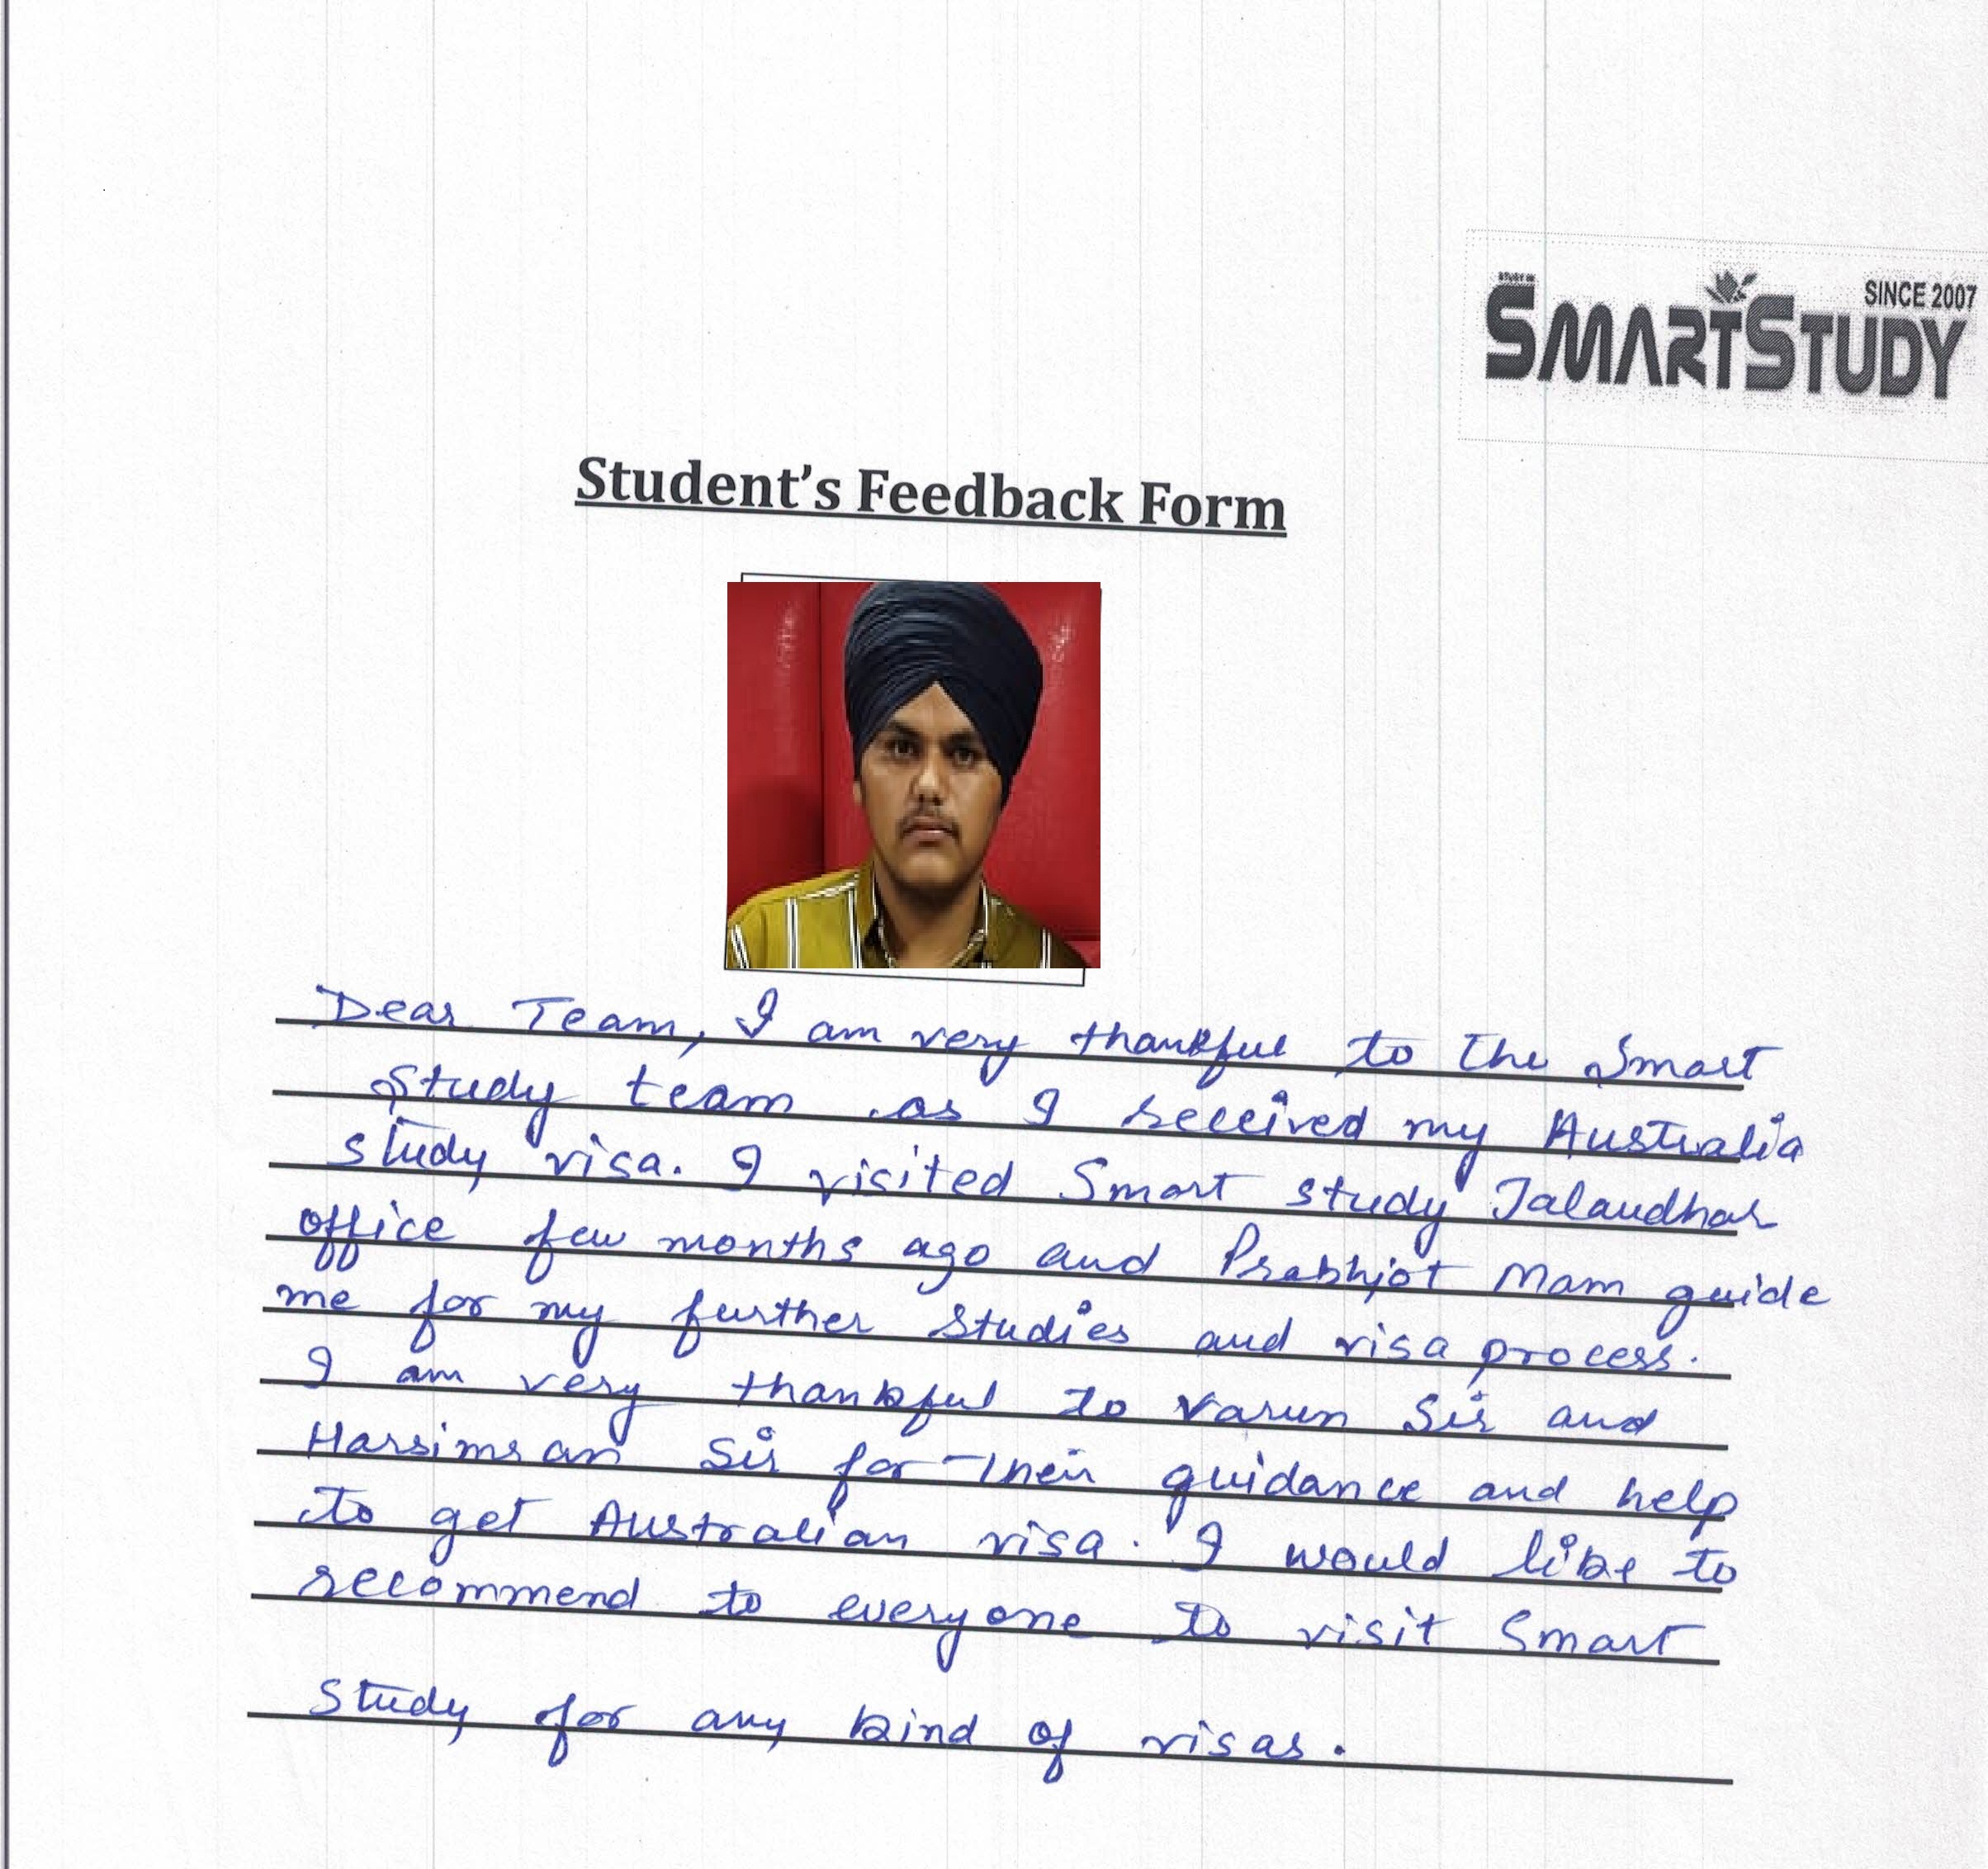 SINCE 2007
SMARTSTUDY
Student's Feedback Form
Dear Team, I am very thankful to the Smart
Study team as I received my Australia
study visa. I visited Smart study Jalandhar
office few months ago and Prabhjot Mam guide
me for my further studies and visa process.
I am very thankful to Varun Sir and
Harsimran Sir for their guidance and help
to get Australian visa. I would like to
recommend to everyone to visit Smart
study for any kind of visas.